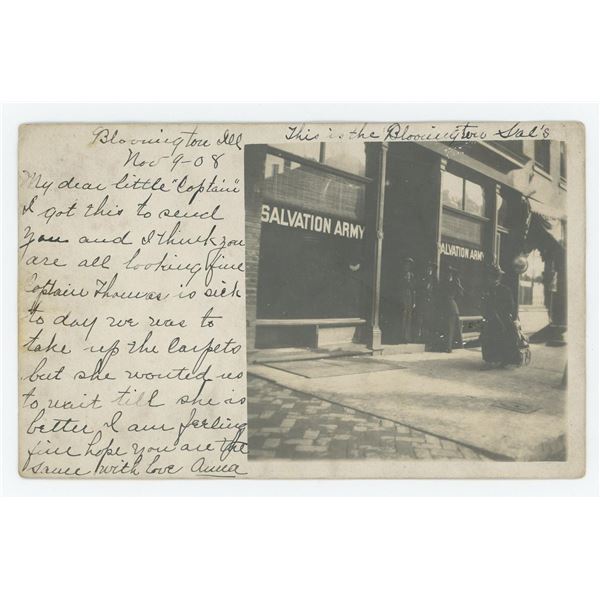 Bloomington Ill
Nov 9-08
This is the Bloomington Sal's
My dear little "Captain"
I got this to send
you and I think you
are all looking fine
Captain Thomas is sick
to day we was to
take up the carpets
but she wonted us
to wait till she is
better, I am feeling
fine hope you are the
same with love Anna
SALVATION ARMY
SALVATION ARMY